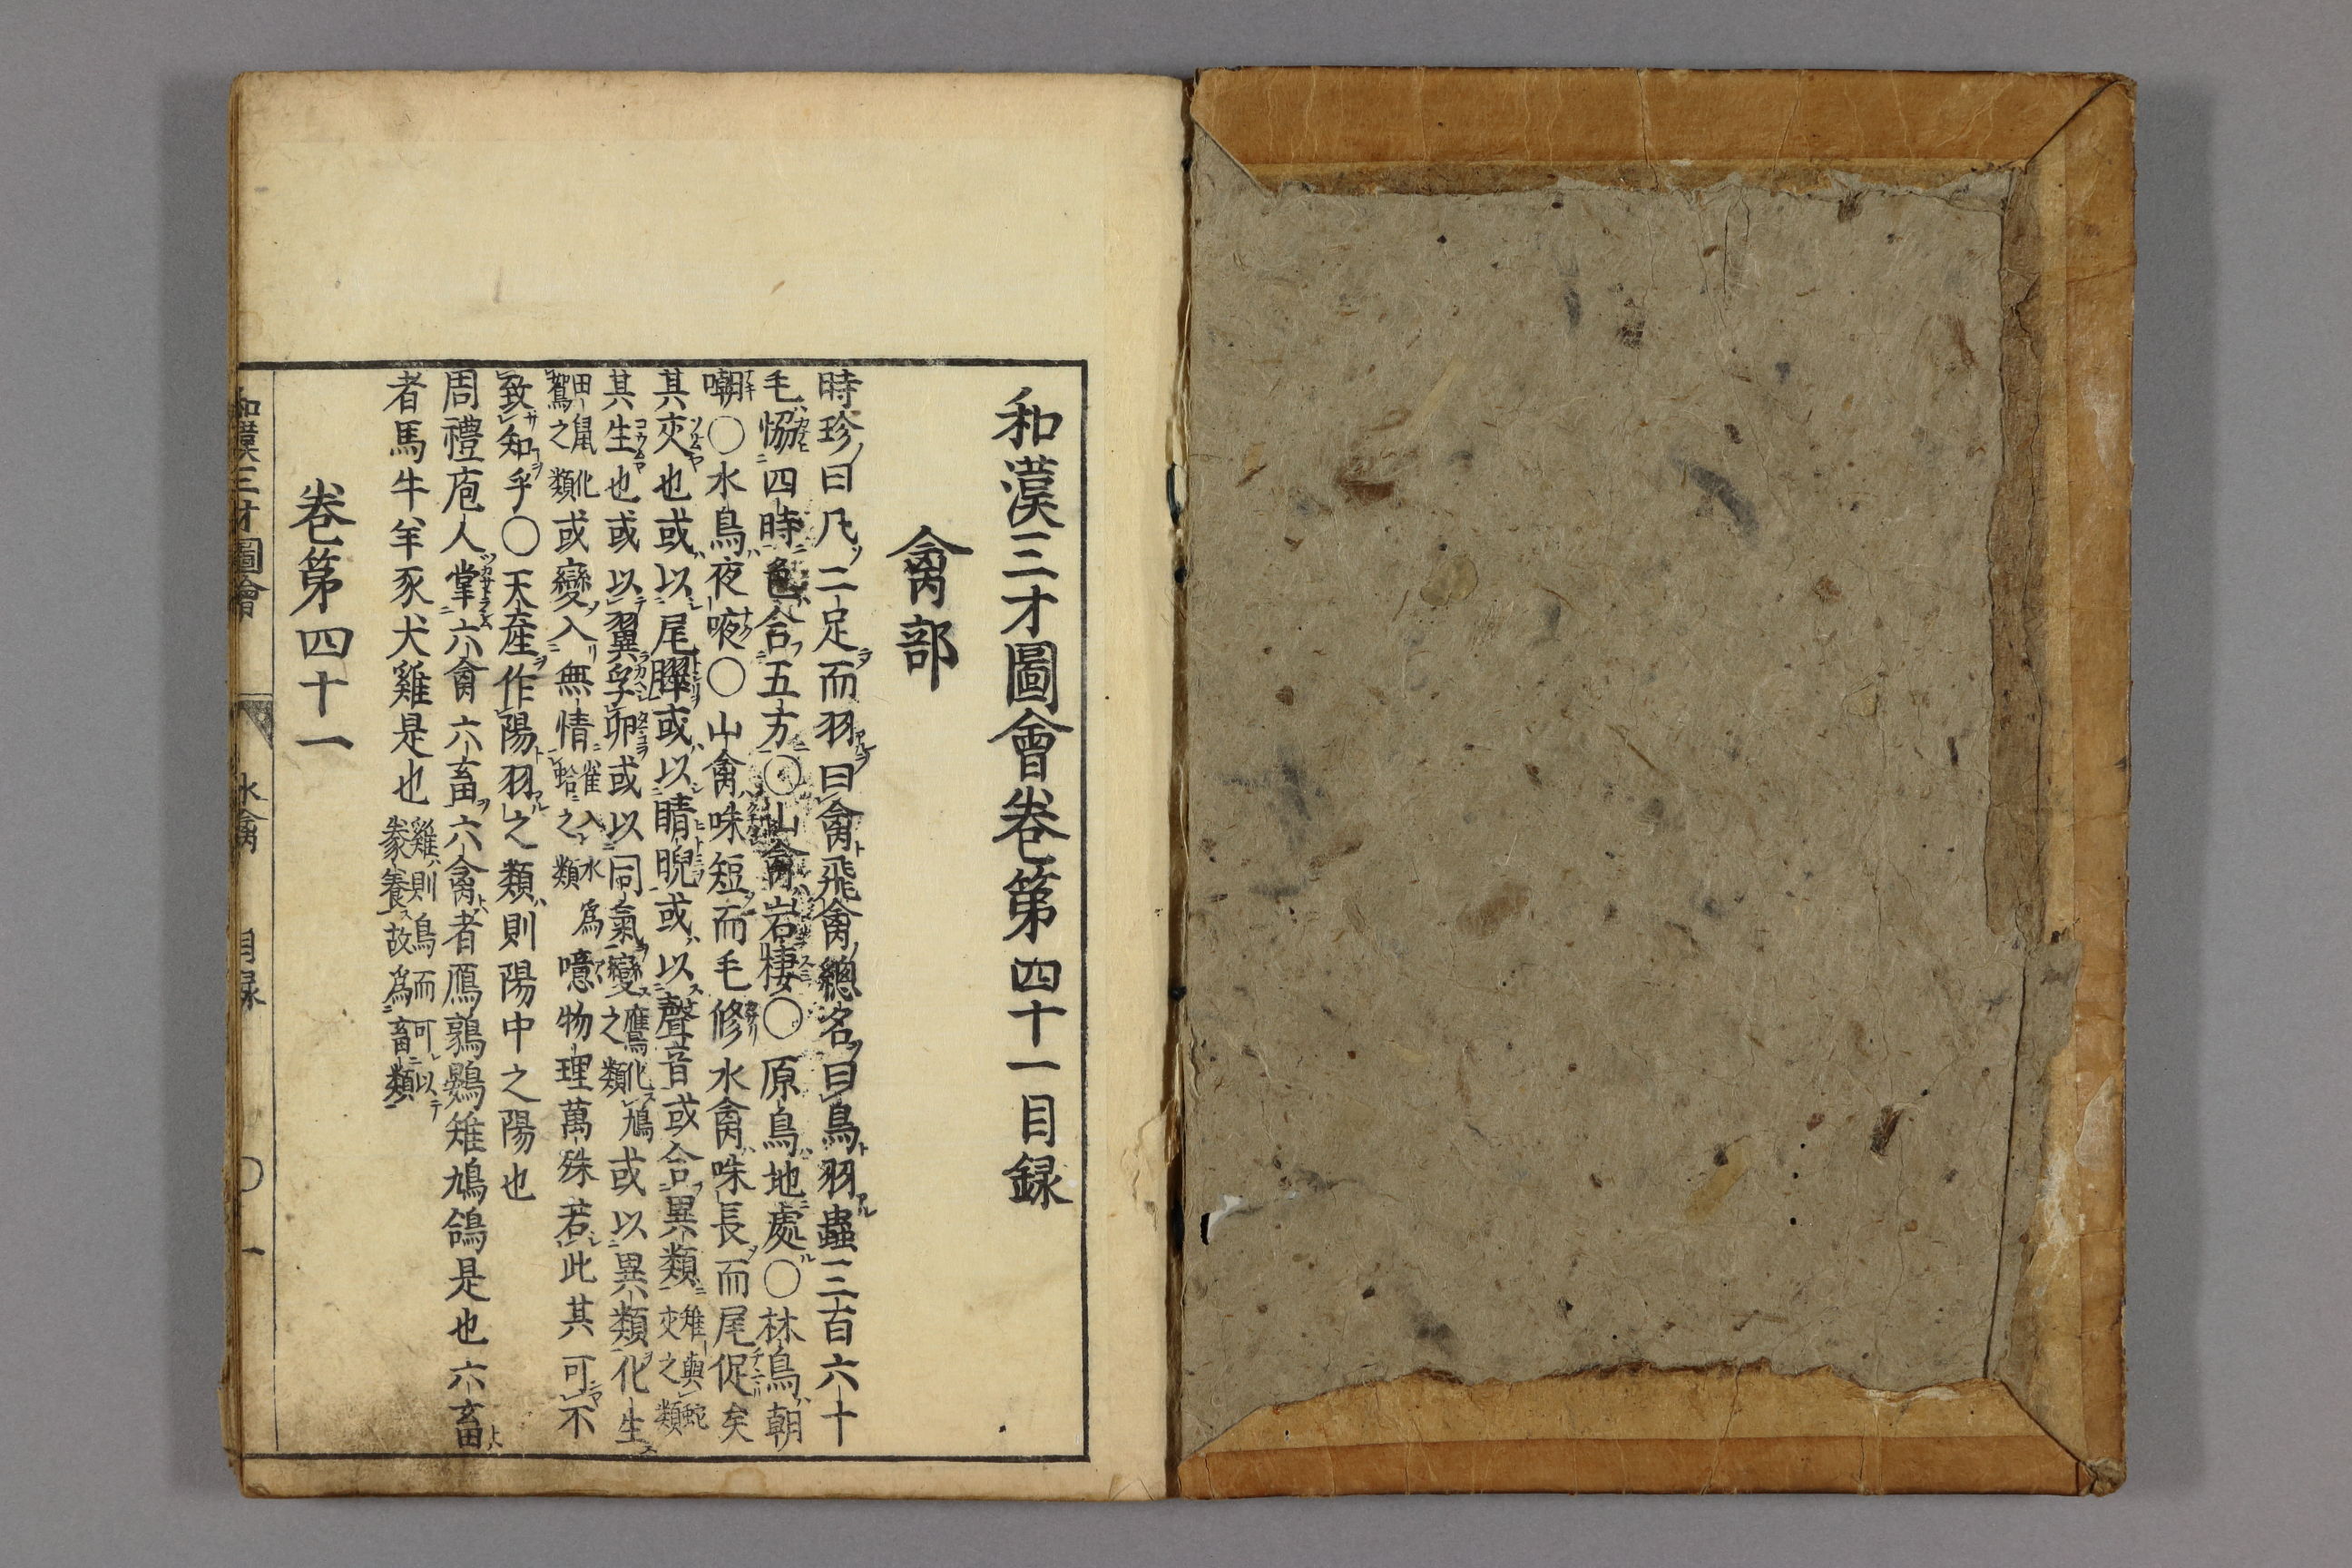 和漢三才圖會卷第四十一目録
禽部
時珍曰凡二足而羽曰禽飛禽總名曰鳥羽蟲三百六十
毛恊四時色合五方〇山禽岩棲〇原鳥地處〇林鳥朝
嘲〇水鳥夜㖡〇山禽咮短而毛修水禽咮長而尾促矣
其交也或以尾臎或以睛睨或以聲音或合異類雉與蛇交之類
其生也或以翼孚卵或以同氣變鷹化鳩之類或以異類化生
田鼠化鴽之類或變入無情雀入水爲蛤之類噫物理萬殊若此其可不
致知乎〇天産作陽羽之類則陽中之陽也
周禮庖人掌六禽六畜六禽者鴈鶉鷃雉鳩鴿是也六畜
者馬牛羊豕犬雞是也雞則鳥而可以豢養故爲畜類
卷第四十一
和漢三才圖會 水禽 目録 〇一